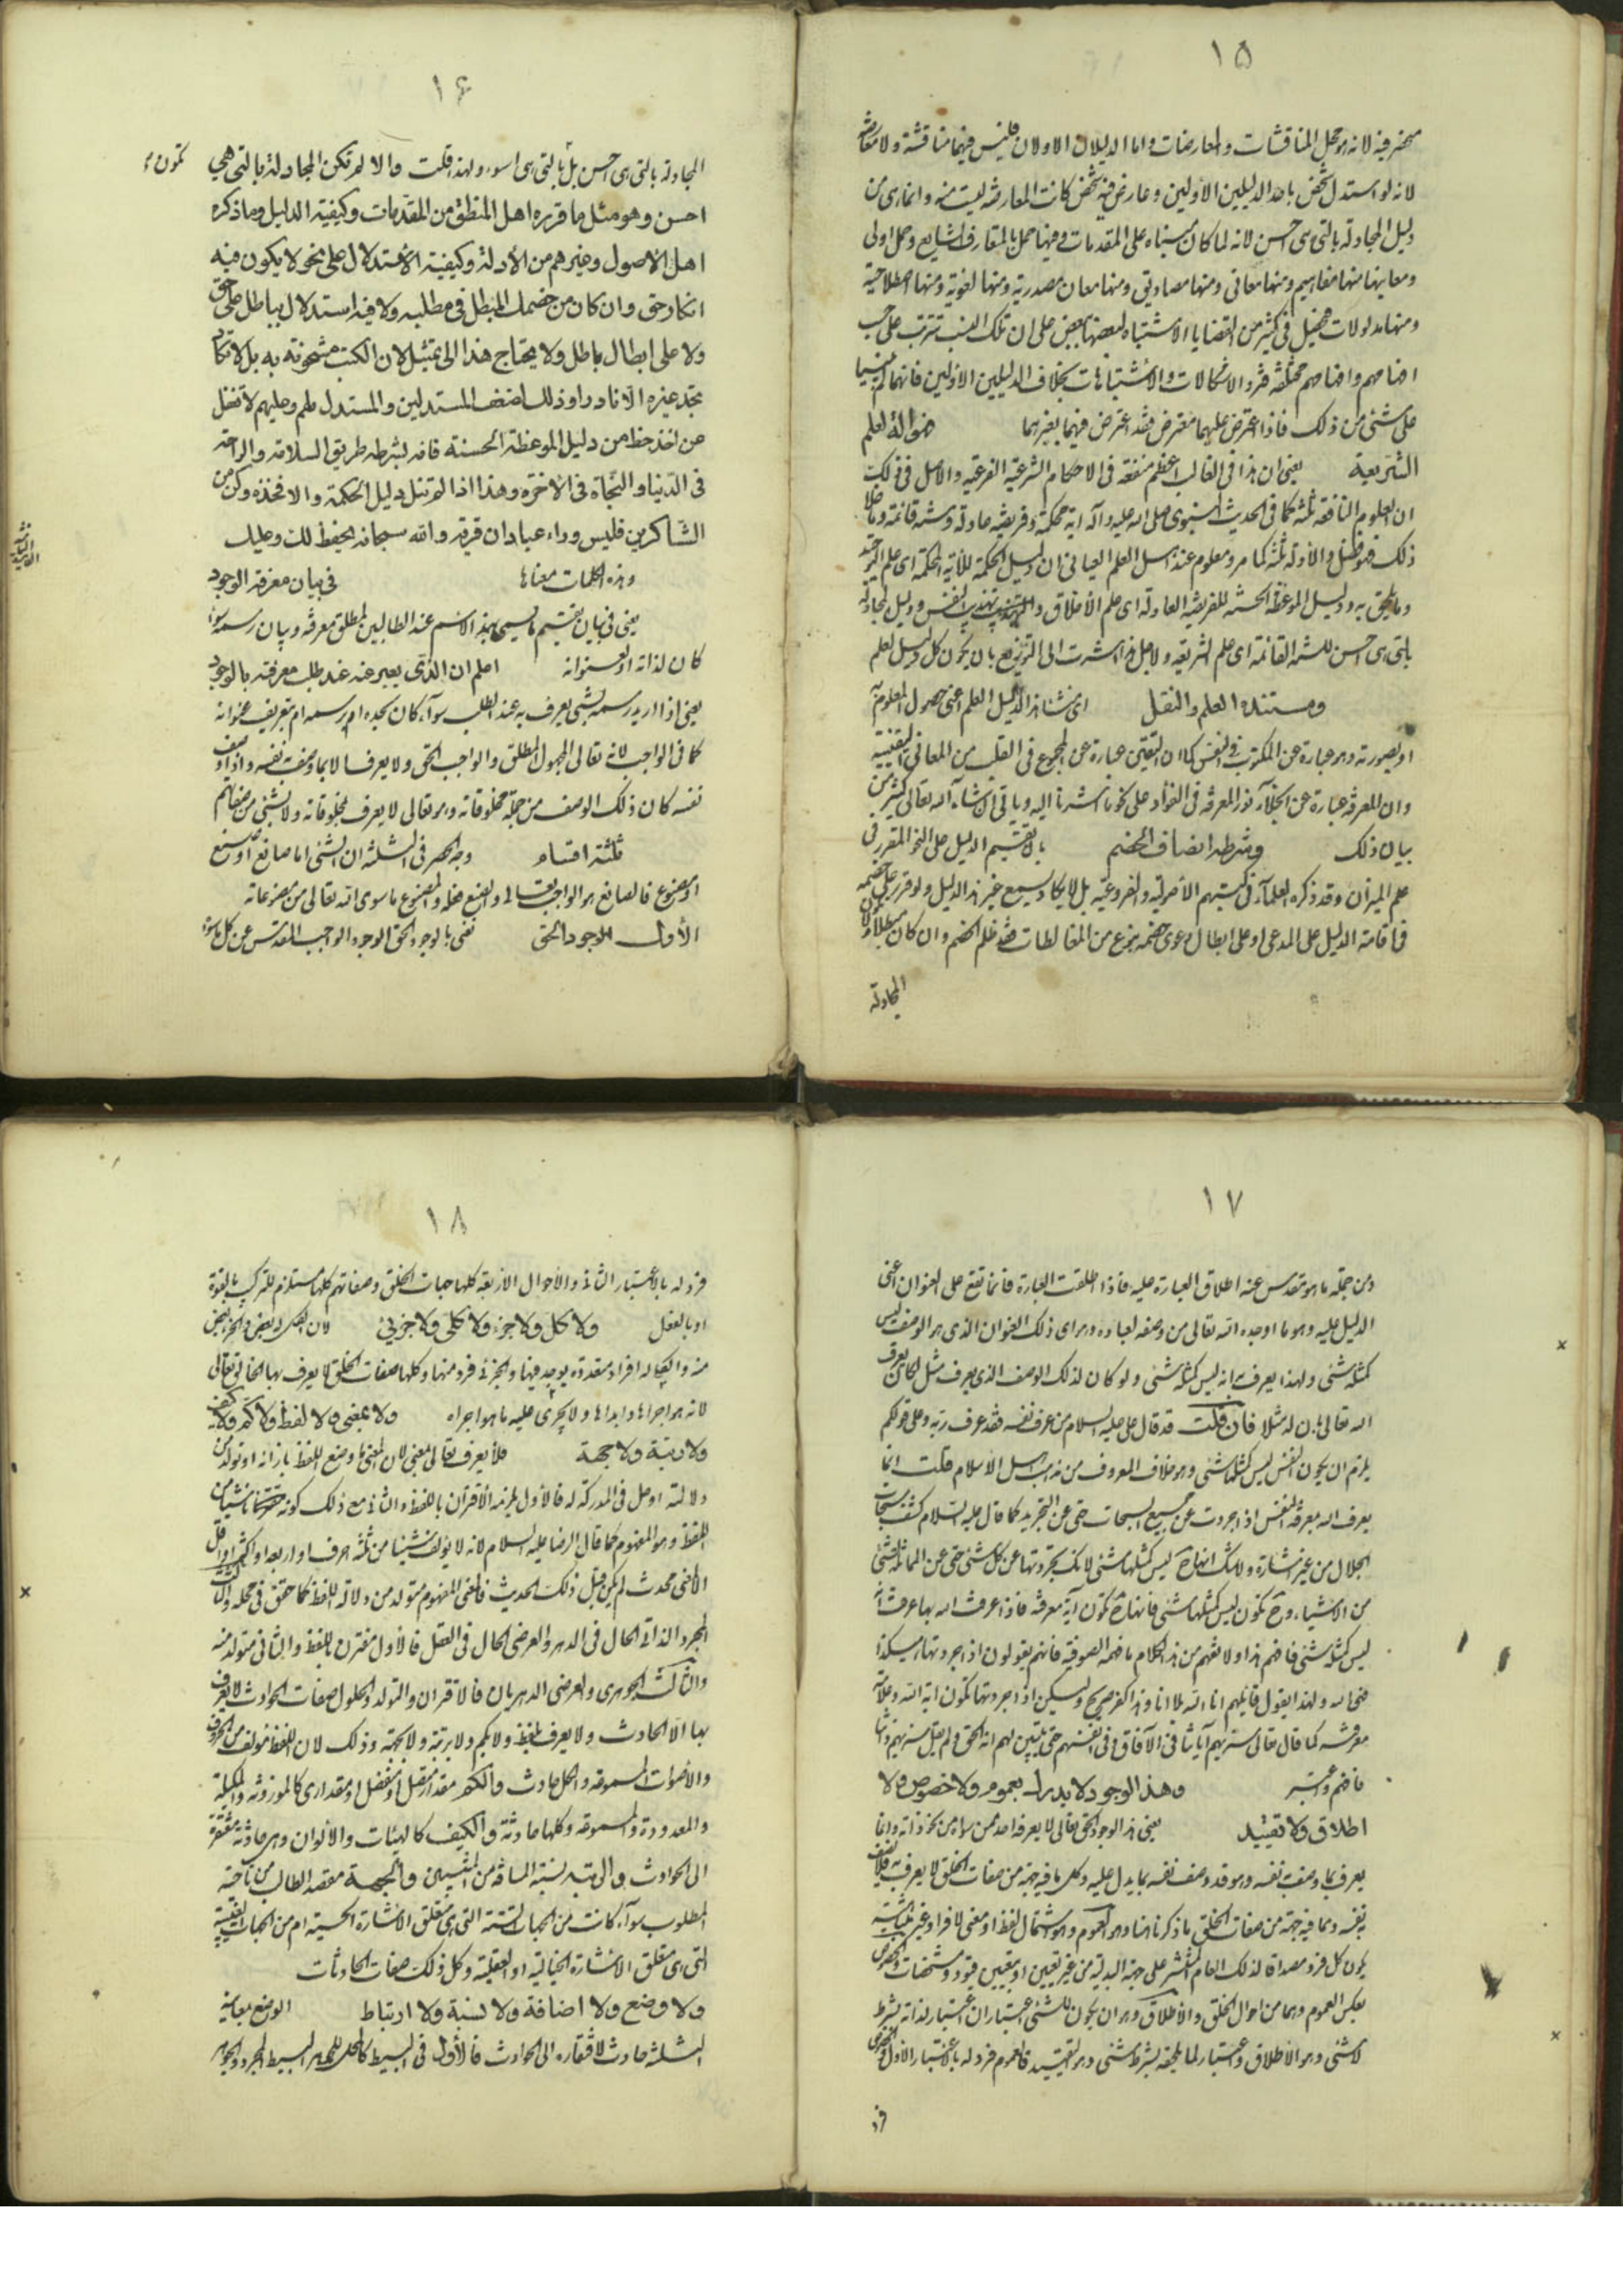 ١٥
لانه لو استدل شخص باحد الدليلين الاولين وعارض فيه شخص كانت المعارضة ليست منه وانما هى من
دليل المجادلة بالتى هى احسن لانه لما كان مبناه على المقدمات وفيها حمل بالمتعارف الشايع وحمل اولى
ومعانيها منها مفاهيم ومنها معانى ومنها مصاديق ومنها معان مصدرية ومنها لغوية ومنها اصطلاحية
على شئ من ذلك فاذا اعترض عليهما معترض فقد اعترض فيهما بغيرهما
الشريعة يعنى ان هذا فى الغالب اعظم منفعة فى الاحكام الشرعية الفرعية والاصل فى ذلك
ان العلوم النافعة ثلثة كما فى الحديث النبوى صلى الله عليه وآله اية محكمة وفريضة عادلة وسنة قائمة وما خلا
ذلك فهو فضل والادلة ثلثة كما مر ومعلوم عند اهل العلم العيانى ان دليل الحكمة للآية المحكمة اى علم التوحيد
وما يلحق به ودليل الموعظة الحسنة للفريضة العادلة اى علم الاخلاق وتهذيب النفس ودليل المجادلة
بالتى هى احسن للسنة القائمة اى علم الشريعة ولاجل هذا اشرت الى التوزيع بان يكون كل دليل لعلم
ومستنده العلم والنقل اى منشأ هذا الدليل العلم اعنى حصول المعلوم به
او بصورته وهو عبارة عن المكتوب فى النفس كما ان اليقين عبارة عن المجموع فى القلب من المعانى اليقينية
وان المعرفة عبارة عن انجلاء نور المعرفة فى الفؤاد على نحو ما اشرنا اليه وياتى ان شاء الله تعالى كثير من
بيان ذلك وشرطه انصاف الخصم بان تقسيم الدليل على النحو المقرر فى
علم الميزان وقد ذكره العلماء فى كتبهم الاصولية والفروعية بل لا يكاد يسمع غير هذا الدليل ولو قرر على خصمه
فى اقامة الدليل على المدعى او على ابطال دعوى خصمه بنوع من المغالطات فقد ظلم الخصم وان كان مبطلا
المجادلة
١۶
المجادلة بالتى هى احسن بل بالتى هى اسوء ولهذا قلت والا لم تكن المجادلة بالتى هى
احسن وهو مثل ما قرره اهل المنطق من المقدمات وكيفية الدليل وما ذكره
اهل الاصول وغيرهم من الأدلة وكيفية الأستدلال على نحو لا يكون فيه
انكار حق وان كان من خصمك المبطل فى مطلبه ولا فيه استدلال بباطل على حق
ولا على ابطال باطل ولا يحتاج هذا الى تمثيل لان الكتب مشحونة به بل لا تكاد
تجد غيره الا نادرا وذلك لضعف المستدلين والمستدل لهم وعليهم لا تغفل
عن اخذ حظ من دليل الموعظة الحسنة فانه بشرطه طريق السلامة والراحة
فى الدنيا والنجاة فى الاخرة وهذا اذا لم تنل دليل الحكمة والا فخذه وكن من
الشاكرين فليس وراء عبادان قرية والله سبحانه يحفظ لك وعليك
وهذه الكلمات معناها فى بيان معرفة الوجود
يعنى فى بيان تقسيم ما يسمى بهذا الاسم عند الطالبين لمطلق معرفته وبيان رسمه سواء
كان لذاته او لعنوانه اعلم ان الذى يعبر عنه عند طلب معرفته بالوجود
كما فى الواجب لانه تعالى المجهول المطلق والواجب الحق ولا يعرف الا بما وصف به نفسه واذا وصف
نفسه كان ذلك الوصف من جملة مخلوقاته وهو تعالى لا يعرف بمخلوقاته ولا بشئ من صفاتهم
ثلثة اقسام وجه الحصر فى الثلثة ان الشئ اما صانع او صنع
او مصنوع فالصانع هو الواجب تعالى والصنع فعله والمصنوع ما سوى الله تعالى من مصنوعاته
الأول الوجود الحق نعنى بالوجود الحق الوجود الواجب المقدس عن كل ما سواه
١٧
ومن جملة ما هو مقدس عنه اطلاق العبارة عليه فاذا اطلقت العبارة فانما تقع على العنوان اعنى
الدليل عليه وهو ما اوجده الله تعالى من وصفه لعباده وهو اى ذلك العنوان الذى هو الوصف ليس
كمثله شئ ولهذا يعرف بانه ليس كمثله شئ ولو كان لذلك الوصف الذى يعرف مثل لكان يعرف
الله تعالى بان له مثلا فان قلت قد قال على عليه السلام من عرف نفسه فقد عرف ربه وعلى قولكم
يلزم ان يكون النفس ليس كمثلها شئ وهو خلاف المعروف من مذهب اهل الاسلام قلت انما
يعرف الله بمعرفة النفس اذا جردت عن جميع السبحات حتى عن التجريد كما قال عليه السلام كشف سبحات
الجلال من غير اشارة ولا شك انها ح ليس كمثلها شئ لانك تجردتها عن كل شئ حتى عن المماثلة لشئ
من الاشياء وح تكون ليس كمثلها شئ فانها ح تكون آية معرفته فاذا عرفت الله بها عرفت انه
ليس كمثله شئ فافهم هذا ولا تفهم من هذا الكلام ما فهمه الصوفية فانهم يقولون اذا جردتها
فهى الله ولهذا يقول قائلهم انا الله بلا انا وهذا كفر صريح وليكن اذا جردتها تكون آية الله وعلامة
معرفته كما قال تعالى سنريهم آياتنا فى الآفاق وفى انفسهم حتى يتبين لهم انه الحق ولم يقل سنريهم ذاتنا
فافهم واعتبر وهذا الوجود لا يدرك بعموم ولا خصوص ولا
اطلاق ولا تقييد يعنى هذا الوجود الحق تعالى لا يعرفه احد ممن سواه من نحو ذاته وانما
يعرف بما وصف به نفسه وهو قد وصف نفسه بما يدل عليه وكل ما فيه جهة من صفات الخلق لا يعرف به
يكون كل فرد مصداقا لذلك العام المنتشر على جهة البدلية من غير تعيين او بتعيين قيود ومشخصات والخصوص
بعكس العموم وهما من احوال الخلق والاطلاق وهو ان يكون للشئ اعتباران اعتبار لذاته بشرط
لا شئ وهو الاطلاق واعتبار لما يلحقه بشرط شئ وهو التقييد فالعموم فرد له بالاعتبار الاول
فرد
١٨
فرد له بالاعتبار الثانى والاحوال الاربعة كلها جهات الخلق وصفاتهم كلها مستلزم للتركيب بالقوة
او بالفعل ولا كل ولا جزء ولا كلى ولا جزئى لان
منه والكلى له افراد متعددة يوجد فيها والجزئى فرد منها وكلها صفات الخلق لا يعرف بها الخالق تعالى
لانه هو اجراها وابداها ولا يجرى عليه ما هو اجراه ولا بمعنى ولا لفظ ولا كم ولا كيف
ولا رتبة ولا جهة فلا يعرف تعالى بمعنى لان المعنى ما وضع اللفظ بازائه او تولد من
دلالته او حل فى المدركة له فالاول يلزمه الاقتران باللفظ والثانى مع ذلك كونه
اللفظ وهو المفهوم كما قال الرضا عليه السلام لانه لا يؤلف شيئا من ثلثة احرف او اربعة او اكثر او اقل
الا لمعنى محدث لم يكن قبل ذلك الحديث فالمعنى المفهوم متولد من دلالة اللفظ كما حقق فى محله والثالث
المجرد الذاتى الحال فى الدهر والعرضى الحال فى العقل فالاول مقترن باللفظ والثانى متولد منه
والثالث الجوهرى والعرضى الدهريان فالاقتران والتولد والحلول صفات الحوادث لا يعرف
بها الا الحادث ولا يعرف بلفظ ولا بكم ولا برتبة ولا بجهة وذلك لان اللفظ مؤلف من الحروف
والاصوات المسموعة والكل حادث والكم مقدار متصل او منفصل او مقدارى كالموزونة والمكيلة
والمعدودة والمسموعة وكلها حادثة والكيف كالهيئات والالوان وهى حادثة مفتقرة
الى الحوادث والرتبة نسبة المسافة من الشيئين والجهة مقصد الطالب من ناحية
المطلوب سواء كانت من الجهات الستة التى هى متعلق الاشارة الحسية ام من الجهات الغيبية
التى هى متعلق الاشارة الخيالية او العقلية وكل ذلك صفات الحادثات
ولا وضع ولا اضافة ولا نسبة ولا ارتباط الوضع بمعانيه
الثلثة حادث لافتقاره الى الحوادث فالاول فى البسيط